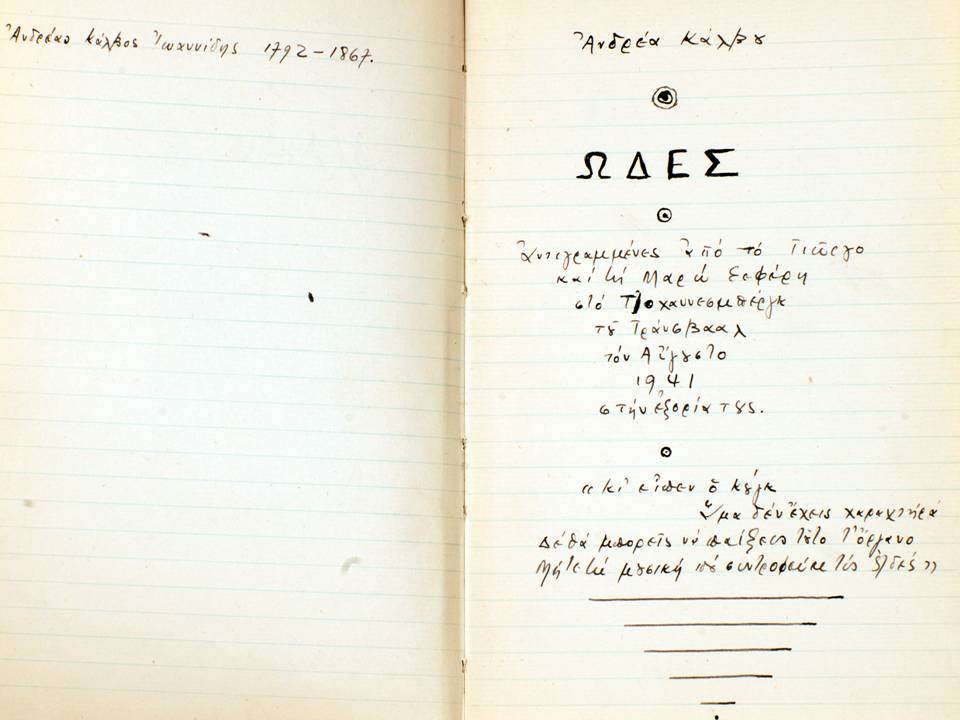 Ἀνδρέας Κάλβος Ἰωαννίδης 1792 – 1867.
Ἀνδρέα Κάλβου
ΩΔΕΣ
Ἀντιγραμμένες ἀπό τό Γιῶργο
καί τή Μαρώ Σεφέρη
στό Τζοχαννεσμπέργκ
τοῦ Τράνσβααλ
τόν Αὔγουστο
1941
στήν ἐξορία τους.
« Κι' εἶπεν ὁ Κούγκ
Ἄμα δέν ἔχεις χαραχτήρα
Δέ θά μπορεῖς νά παίξεις τοῦτο τ' ὄργανο
Μήτε τή μουσική πού συντροφεύει τές Ὠδές »